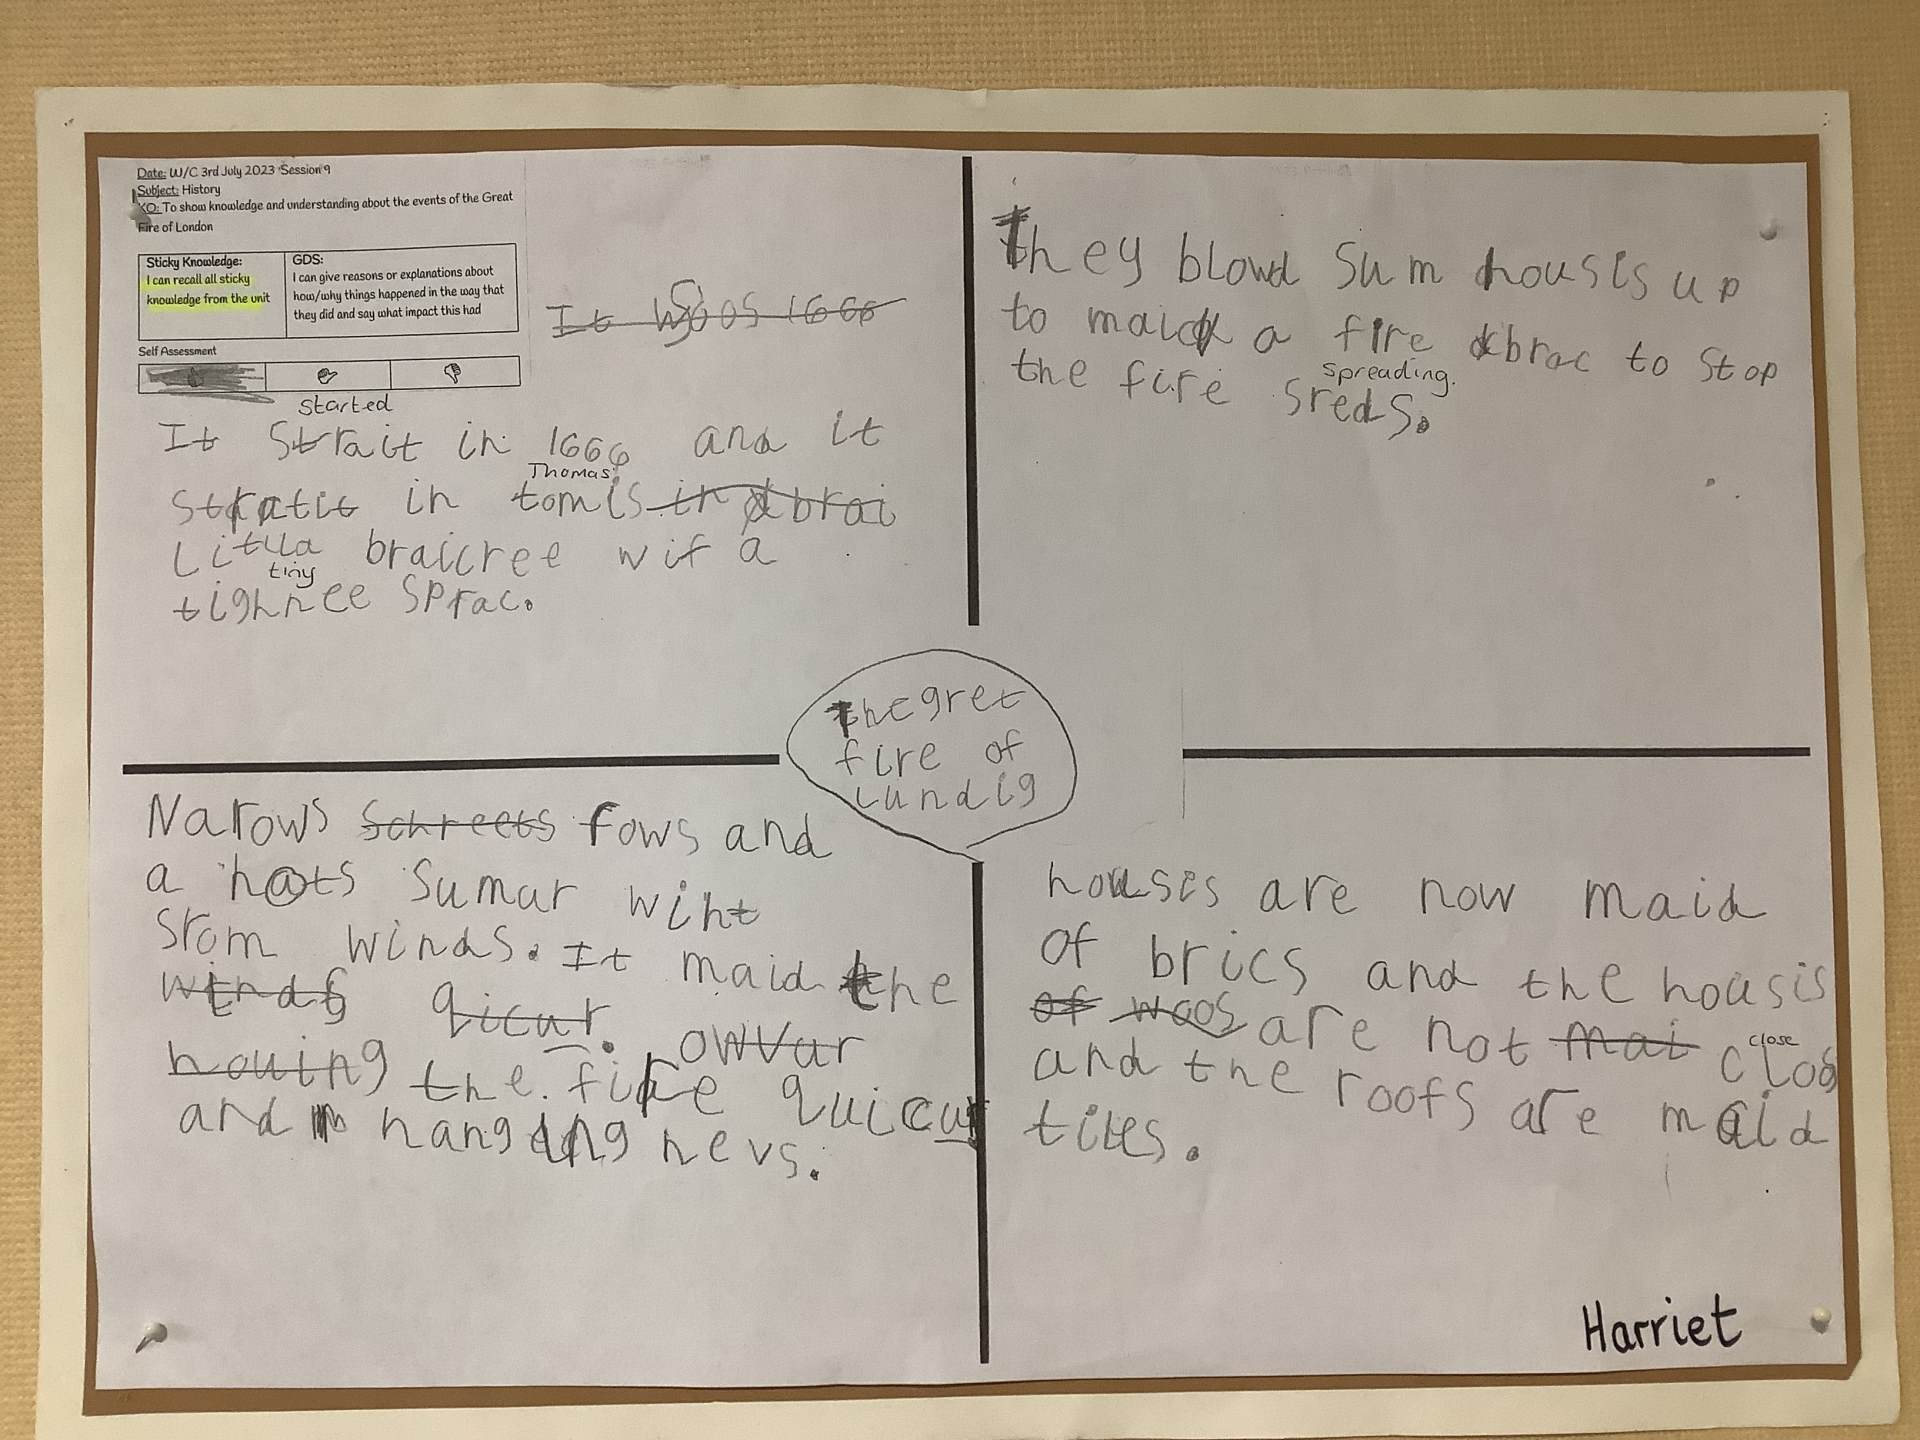 Date: W/C 3rd July 2023 Session 9
Subject: History
KO: To show knowledge and understanding about the events of the Great
Fire of London
Sticky Knowledge:
I can recall all sticky
knowledge from the unit
GDS:
I can give reasons or explanations about
how/why things happened in the way that
they did and say what impact this had
Self Assessment
It 1666
started
It Strait in 1666 and it
Thomas
stratit in tomis in brai
Litlla braicree wif a
tiny
tighnee Sprac.
They blowd Sum housis up
to maick a fire brac to stop
spreading.
the fire sreds.
The gret
fire of
Lundig
Narows Schreets rows and
a hots Sumar wiht
Strom winds. It maid the
winds qicur. owvur
houing the fire quicur
and hanging nevs.
houses are now maid
of brics and the housis
of woos are not mai clos
close
and the roofs are maid
tiles.
Harriet